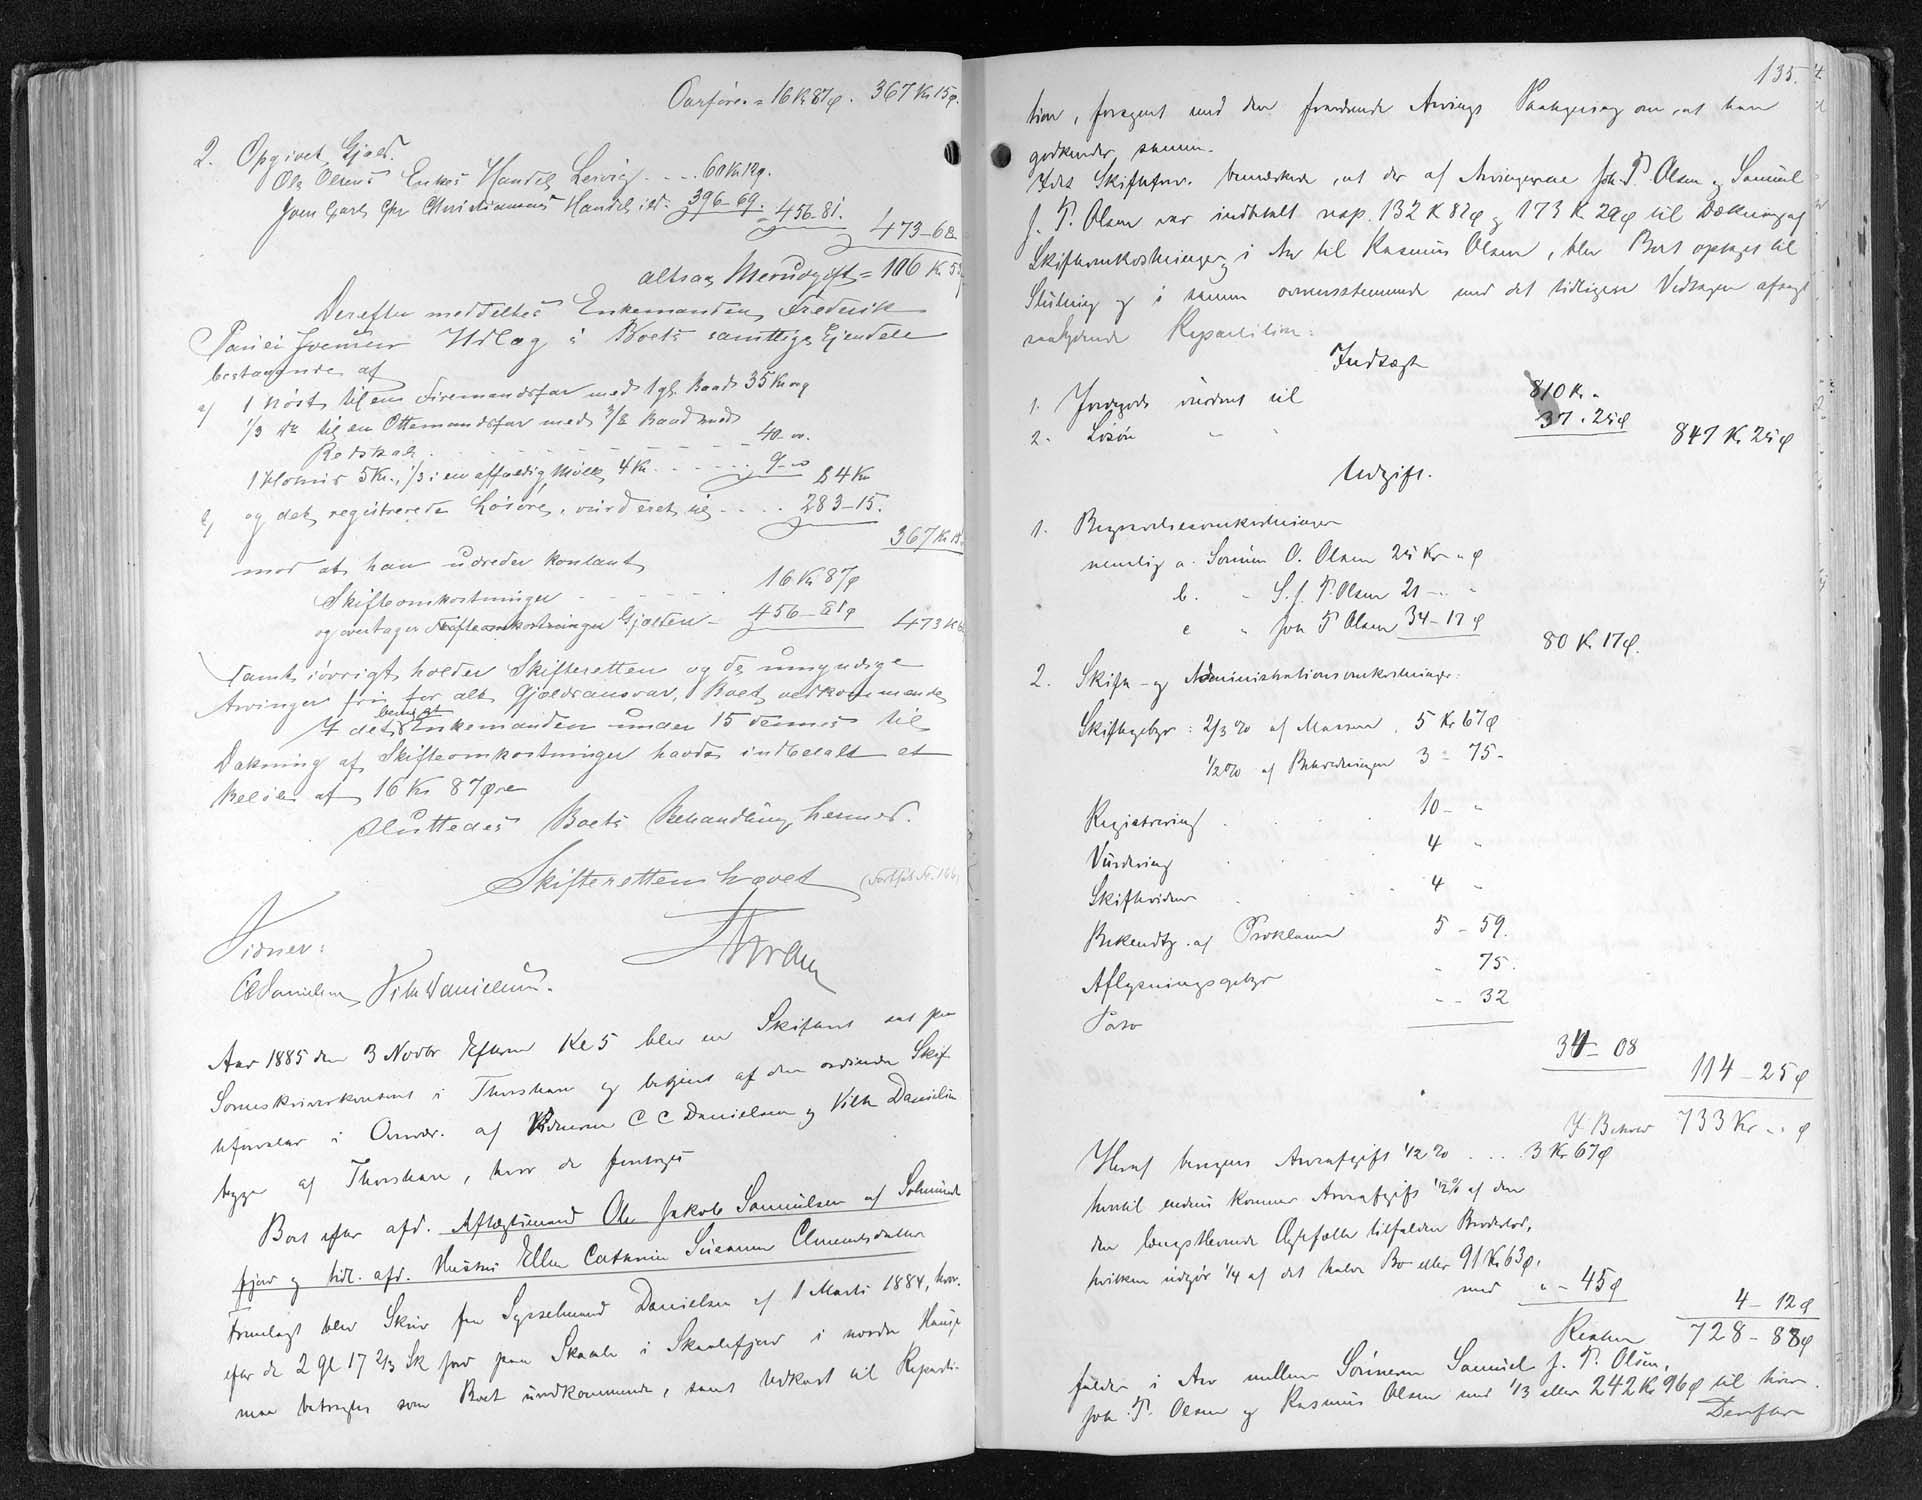 Overføres = 16 Kr 87 ø. 367 Kr 15 ø.
2. Opgivet Gjæld.
Ole Olsens Enkes Handel Leivig . . . 60 Kr 12 ø.
Sven Carl Chr Christiansens Handel ibd. 396-69. = 456-81.
473-68
altsaa Merudgift = 106 Kr 53
Derefter meddeltes Enkemanden Frederik
Joensen Udlæg i Boets samtlige Ejendele
bestaaende af
a) 1 Nøst til en Firemandsfar med 1 gl. Baad 35 Kr og
1/3 do til en Ottemandsfar med 3/8 Baad med
Redskab . . . . . . 40 oo.
1 Hornhus 5 Kr., 1/3 i en affældig Mølle 4 Kr . . . 9-oo
84 Kr
b) og det registrerede Løsøre, vurderet til . . . 283-15.
367 Kr 15
mod at han udreder kontant
Skifteomkostninger . . . . . . 16 Kr 87 ø
og overtager Skifteomkostninger Gjælden - 456-81 ø
473 Kr 68
samt iøvrigt holder Skifteretten og de umyndige
Arvinger fri for alt Gjældsansvar, Boet vedkommende
bemgt
I det Enkemanden under 15 dennes til
Dækning af Skifteomkostninger havde indbetalt et
Beløb af 16 Kr 87 Øre
sluttedes Boets Behandling hermed.
Skifteretten hævet (Fortsat Fr. 166)
Vidner:
CC Danielsen Vilh Danielsen.
Aar 1885 den 3 Novbr Efterm Kl 5 blev en Skifteret sat paa
Sorenskriverkontoret i Thorshavn og betjent af den ordinære Skif-
teforvalter i Overvær. af Vidnerne C C Danielsen og Vilh Danielsen
begge af Thorshavn, hvor da foretoges
Boet efter afd. Aftægtsmand Ole Jakob Samuelsen af Solmunde
fjord og tidl. afd. Hustru Ellen Cathrine Susanne Clemensdatter
Fremlagt blev Skriv fra Sysselmand Danielsen af 1 Marts 1884, hvor-
efter de 2 Gl 17 2/3 Sk Jord paa Skaale i Skaalefjord i nordre Hauge
maa betragtes som Boet uvedkommende, samt Udkast til Reparti-
135.
tion, forsynet med den fraværende Arvings Paategning om, at han
godkender samme.
Idet Skifteforv. bemærkede, at der af Arvingerne Joh. P. Olsen og Samuel
J. P. Olsen var indbetalt resp. 132 K 82 ø og 173 K 29 ø til Dækning af
Skifteomkostninger og i Arv til Rasmus Olsen, blev Boet optaget til
Slutning og i samme overensstemmende med det tidligere Vedtagne afsagt
saalydende Repartition:
Indtægt
1. Jordegods vurderet til 810 Kr. -
2. Løsøre - - 37. 25 ø 847 Kr 25 ø
Udgift.
1. Begravelsesomkostninger
nemlig a. Somum O. Olsen 25 Kr " ø
b. - S. J. P. Olsen 21 - "
c " Joh P Olsen 34-17 ø 80 Kr 17 ø.
2. Skifte- og Administrationsomkostninger:
Skiftegebyr: 2/3 % af Massen . 5 Kr 67 ø
1/2 % af Beholdningen 3 - 75 -
Registrering . . . . 10 - "
Vurdering . . . . 4 "
Skiftevidner . . . 4 "
Bekendtg. af Proklama 5 - 59.
Aflysningsgebyr " 75.
Porto " - 32
34 - 08 114 - 25 ø
I Behold 733 Kr " ø
Heraf beregnes Arveafgift 1/2 % . . . 3 Kr 67 ø
hvortil endnu kommer Arveafgift 1/2 % af den
den længstlevende Ægtefælle tilfaldne Broderlod,
hvilken udgør 1/4 af det halve Bo eller 91 Kr 63 ø,
med " - 45 ø 4 - 12 ø
Resten 728 - 88 ø
falder i Arv mellem Sønnerne Samuel J. P. Olsen,
Joh. P. Olsen og Rasmus Olsen med 1/3 eller 242 Kr 96 ø til hver.
Derefter